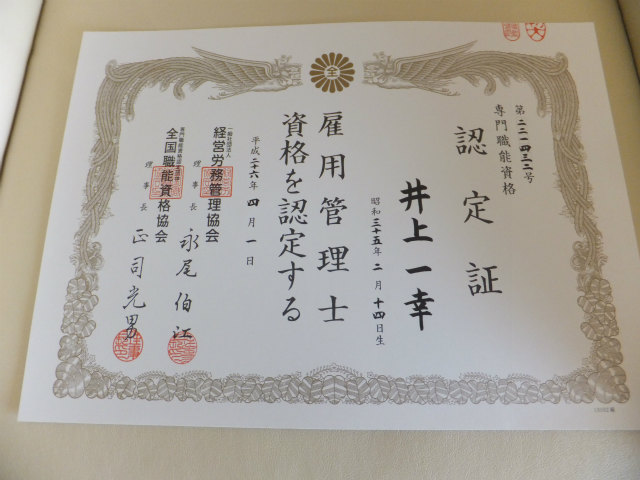 第二二一四三二号
専門職能資格
認定証
井上一幸
昭和三十五年二月十四日生
雇用管理士
資格を認定する
平成二十六年四月一日
一般社団法人
経営労務管理協会
理事長 永尾伯江
全国職能資格協会
理事長 正司光男
全